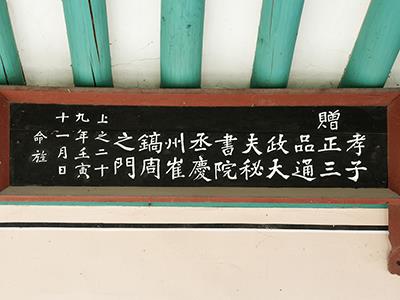 孝子
贈正三
品通
政大
夫秘
書院
丞慶
州崔
鎬周
之門
上之二十
九年壬寅
十一月日
命旌